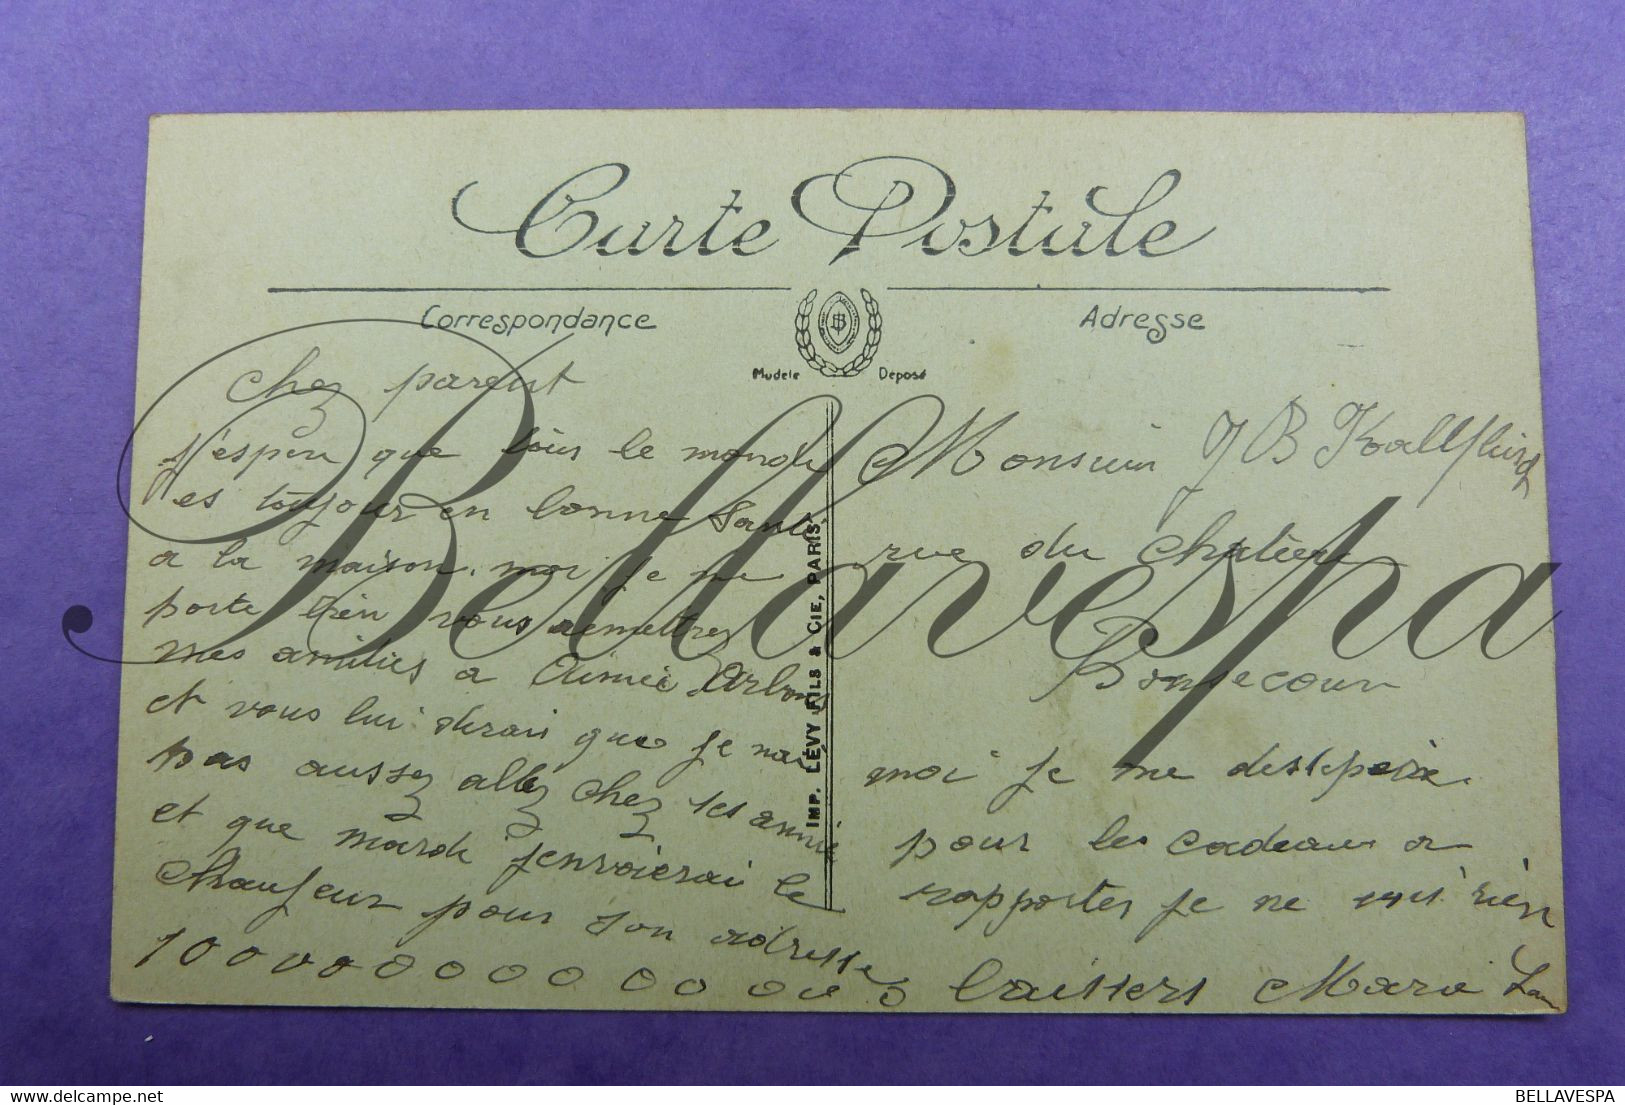 Carte Postale
Correspondance
Adresse
Modèle Déposé
B
IMP. LÉVY FILS & CIE, PARIS
chez parent
j'espere que tous le monde
es toujour en bonne santé
a la maison. moi je me
porte bien vous remettrez
mes amitiés a Aimée
et vous lui dirais que je nai
pas aussez allez chez ses
et que mardi j'envoierai le
chaufeur pour son adresse
Monsieur J B
rue du
Bonsecour
moi je me
pour les cadeaux a
rapporter je ne rien
1000000000000 baissers Maria
Bellavespa
BELLAVESPA